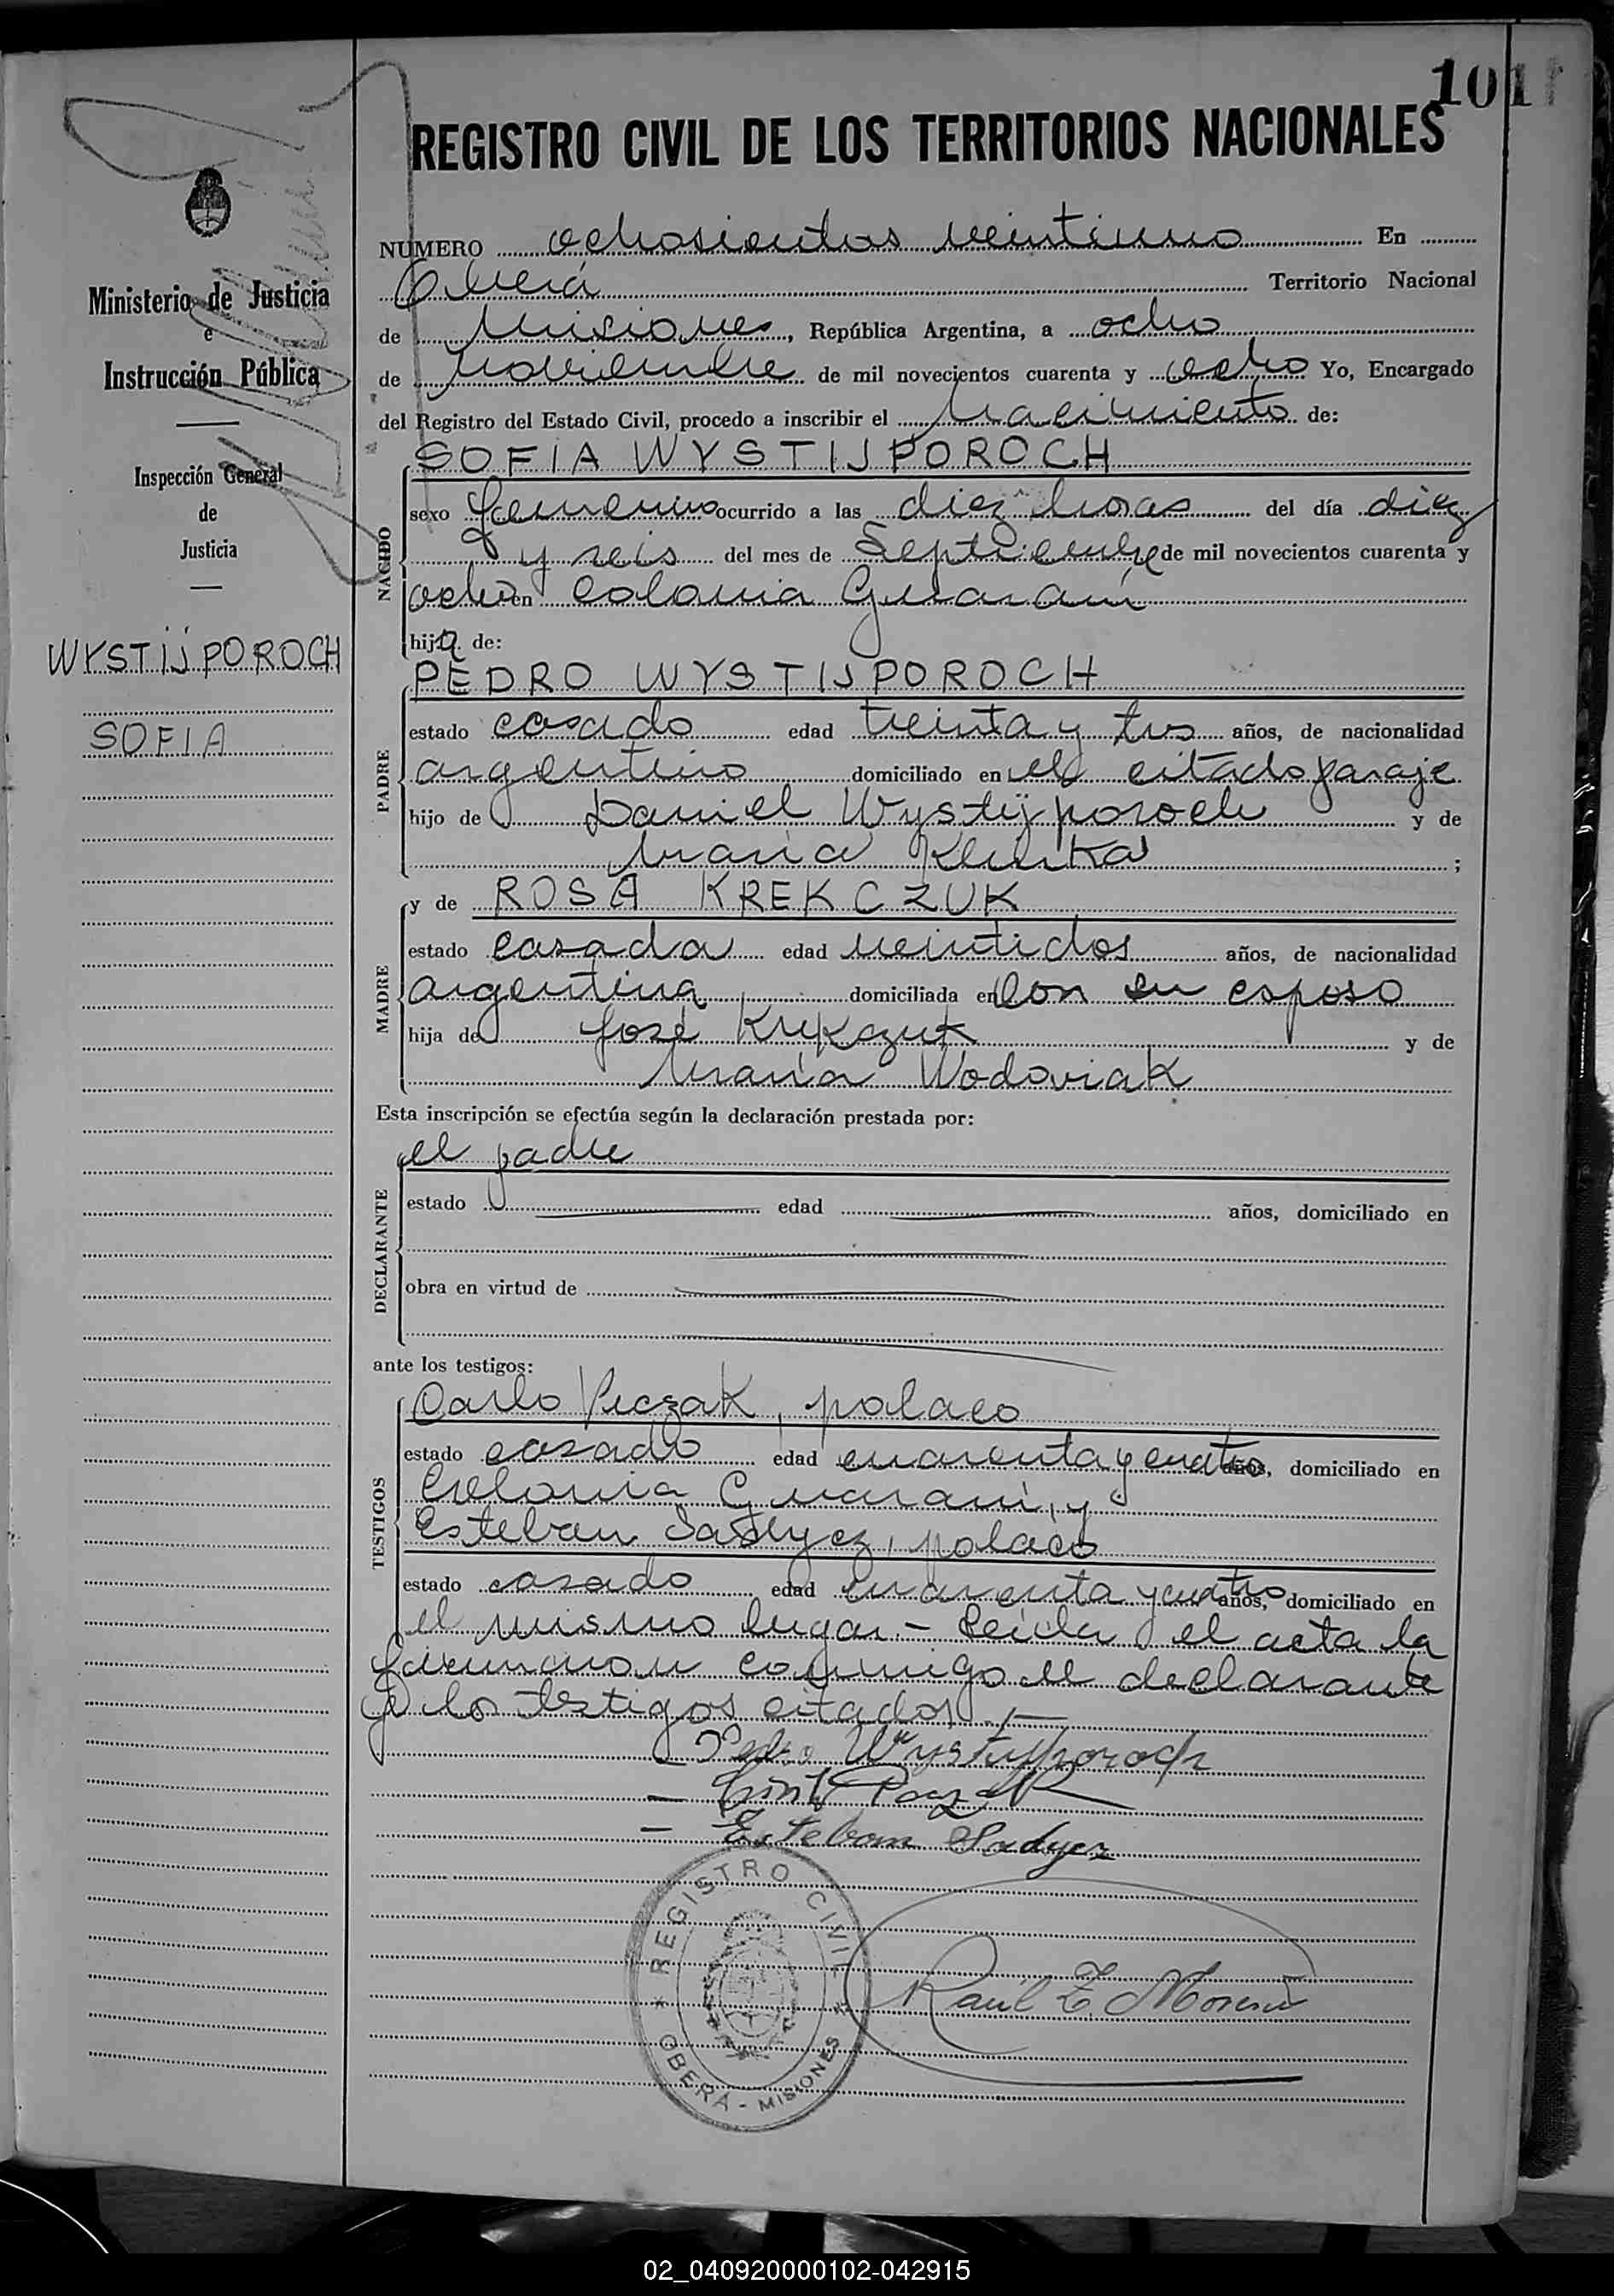 101
REGISTRO CIVIL DE LOS TERRITORIOS NACIONALES
Ministerio de Justicia
e
Instrucción Pública
Inspección General
de
Justicia
WYSTIJPOROCH
SOFIA
NUMERO ochosientos veintiuno En
Oberá Territorio Nacional
de Misiones, República Argentina, a ocho
de Noviembre de mil novecientos cuarenta y ocho Yo, Encargado
del Registro del Estado Civil, procedo a inscribir el Nacimiento de:
NACIDO
SOFIA WYSTIJPOROCH
sexo femenino ocurrido a las diez horas del día diez
y seis del mes de Septiembre de mil novecientos cuarenta y
ocho en Colonia Guaraní
hija de:
PADRE
PEDRO WYSTIJPOROCH
estado casado edad treinta y tres años, de nacionalidad
argentino domiciliado en el citado paraje
hijo de Daniel Wystijporoch y de
María ;
MADRE
y de ROSA KREKCZUK
estado casada edad veintidos años, de nacionalidad
argentina domiciliada en con su esposo
hija de José Krekczuk y de
María Wodoviak
Esta inscripción se efectúa según la declaración prestada por:
DECLARANTE
el padre
estado edad años, domiciliado en
obra en virtud de
ante los testigos:
TESTIGOS
Carlo Peczak, polaco
estado casado edad cuarenta y cuatro años, domiciliado en
Colonia Guaraní, y
Esteban Sadyez, polaco
estado casado edad cuarenta y cuatro años, domiciliado en
el mismo lugar.- Leída el acta la
firmaron conmigo el declarante
y los testigos citados.-
- Pedro Wystijporoch
-
- Esteban Sadyez
REGISTRO CIVIL
OBERA - MISIONES
Raúl Z. Moreno
02_040920000102-042915